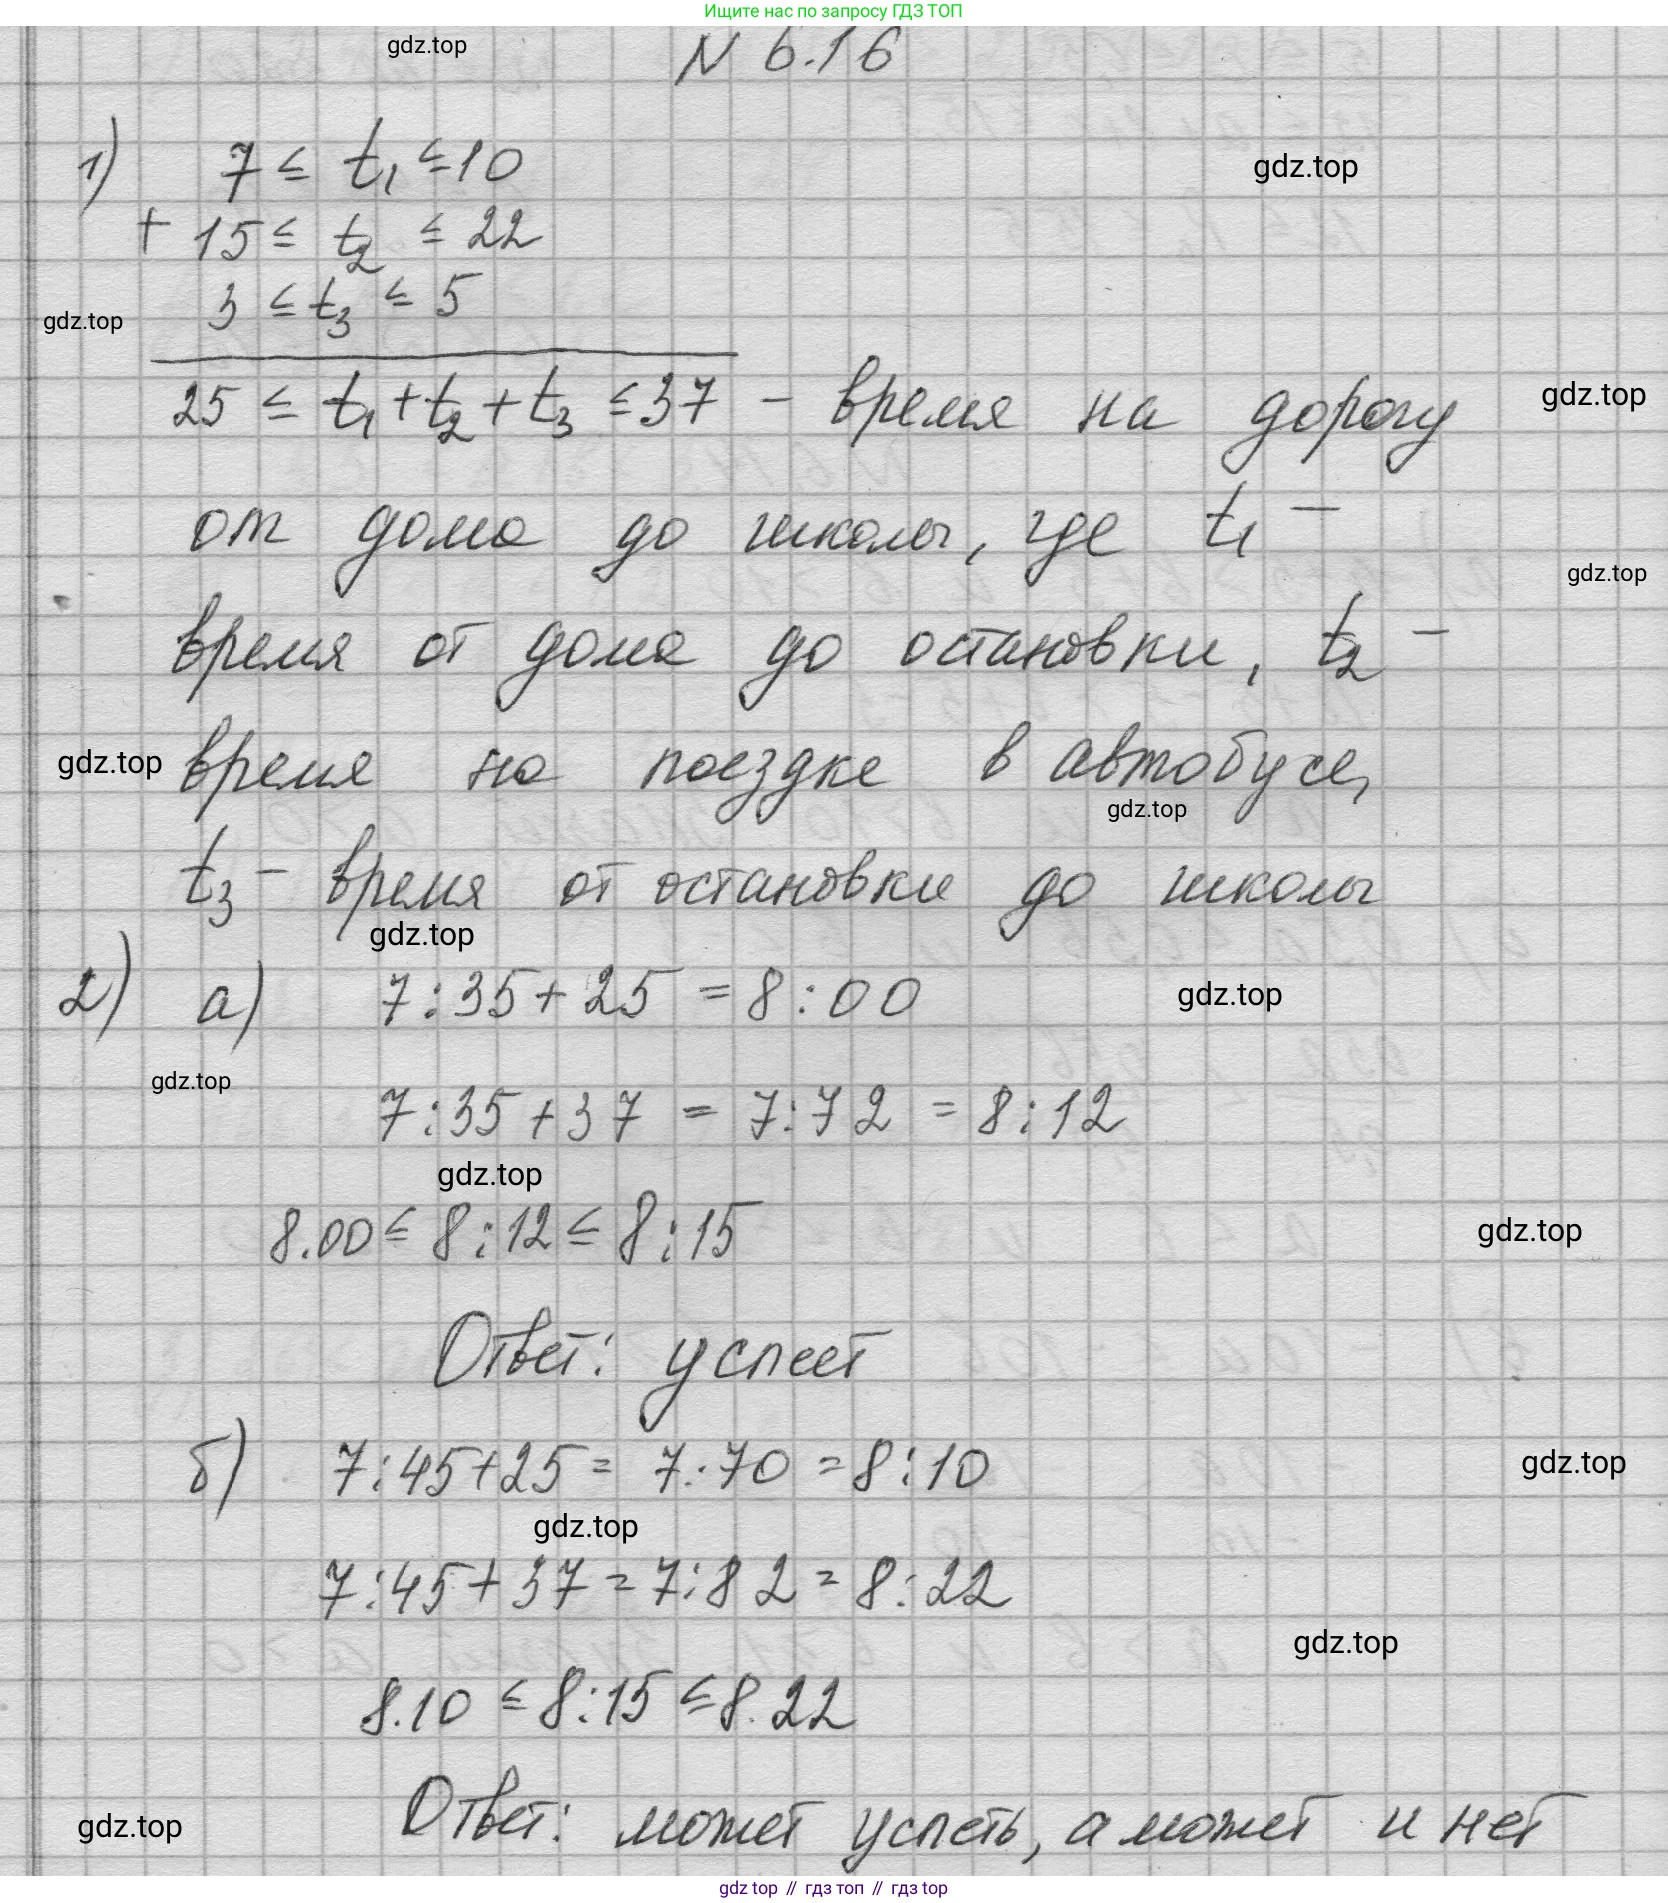 Ищите нас по запросу ГДЗ ТОП
gdz.top
N 6.16
1) 7 ≤ t₁ ≤ 10
gdz.top
+ 15 ≤ t₂ ≤ 22
3 ≤ t₃ ≤ 5
gdz.top
25 ≤ t₁ + t₂ + t₃ ≤ 37 – время на дорогу
gdz.top
от дома до школы, где t₁ –
gdz.top
время от дома до остановки, t₂ –
gdz.top
время на поездке в автобусе,
gdz.top
t₃ – время от остановки до школы
gdz.top
2) а) 7:35 + 25 = 8:00
gdz.top
gdz.top
7:35 + 37 = 7:72 = 8:12
gdz.top
8.00 ≤ 8:12 ≤ 8:15
gdz.top
Ответ: успеет
б) 7:45 + 25 = 7:70 = 8:10
gdz.top
gdz.top
7:45 + 37 = 7:82 = 8:22
gdz.top
8.10 ≤ 8:15 ≤ 8.22
Ответ: может успеть, а может и нет
gdz.top
gdz top // гдз топ // гдз top